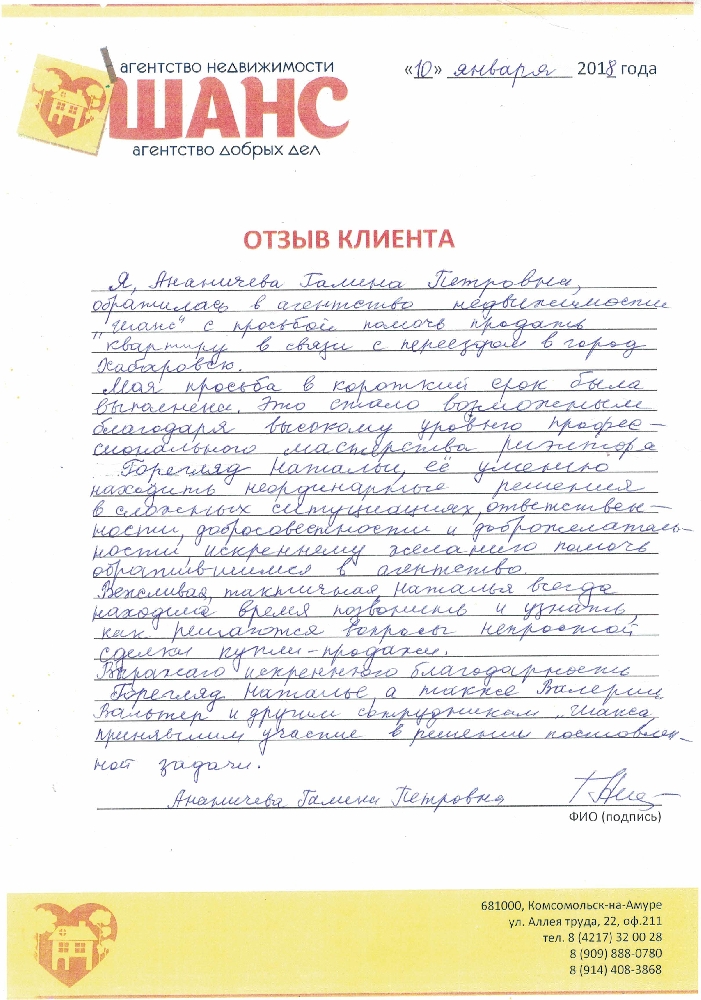 агентство недвижимости
ШАНС
агентство добрых дел
«10» января 2018 года
ОТЗЫВ КЛИЕНТА
Я, Ананичева Галина Петровна,
обратилась в агентство недвижимости
„Шанс“ с просьбой помочь продать
квартиру в связи с переездом в город
Хабаровск.
Моя просьба в короткий срок была
выполнена. Это стало возможным
благодаря высокому уровню профес-
сионального мастерства риэлтора
Горегляд Натальи, её умению
находить неординарные решения
в сложных ситуациях, ответствен-
ности, добросовестности и доброжелатель-
ности, искреннему желанию помочь
обратившимся в агентство.
Вежливая, тактичная, Наталья всегда
находила время позвонить и узнать,
как решаются вопросы непростой
сделки купли-продажи.
Выражаю искреннюю благодарность
Горегляд Наталье, а также Валерии
Вальтер и другим сотрудникам „Шанса“,
принявшим участие в решении поставлен-
ной задачи.
Ананичева Галина Петровна
ФИО (подпись)
681000, Комсомольск-на-Амуре
ул. Аллея труда, 22, оф.211
тел. 8 (4217) 32 00 28
8 (909) 888-0780
8 (914) 408-3868